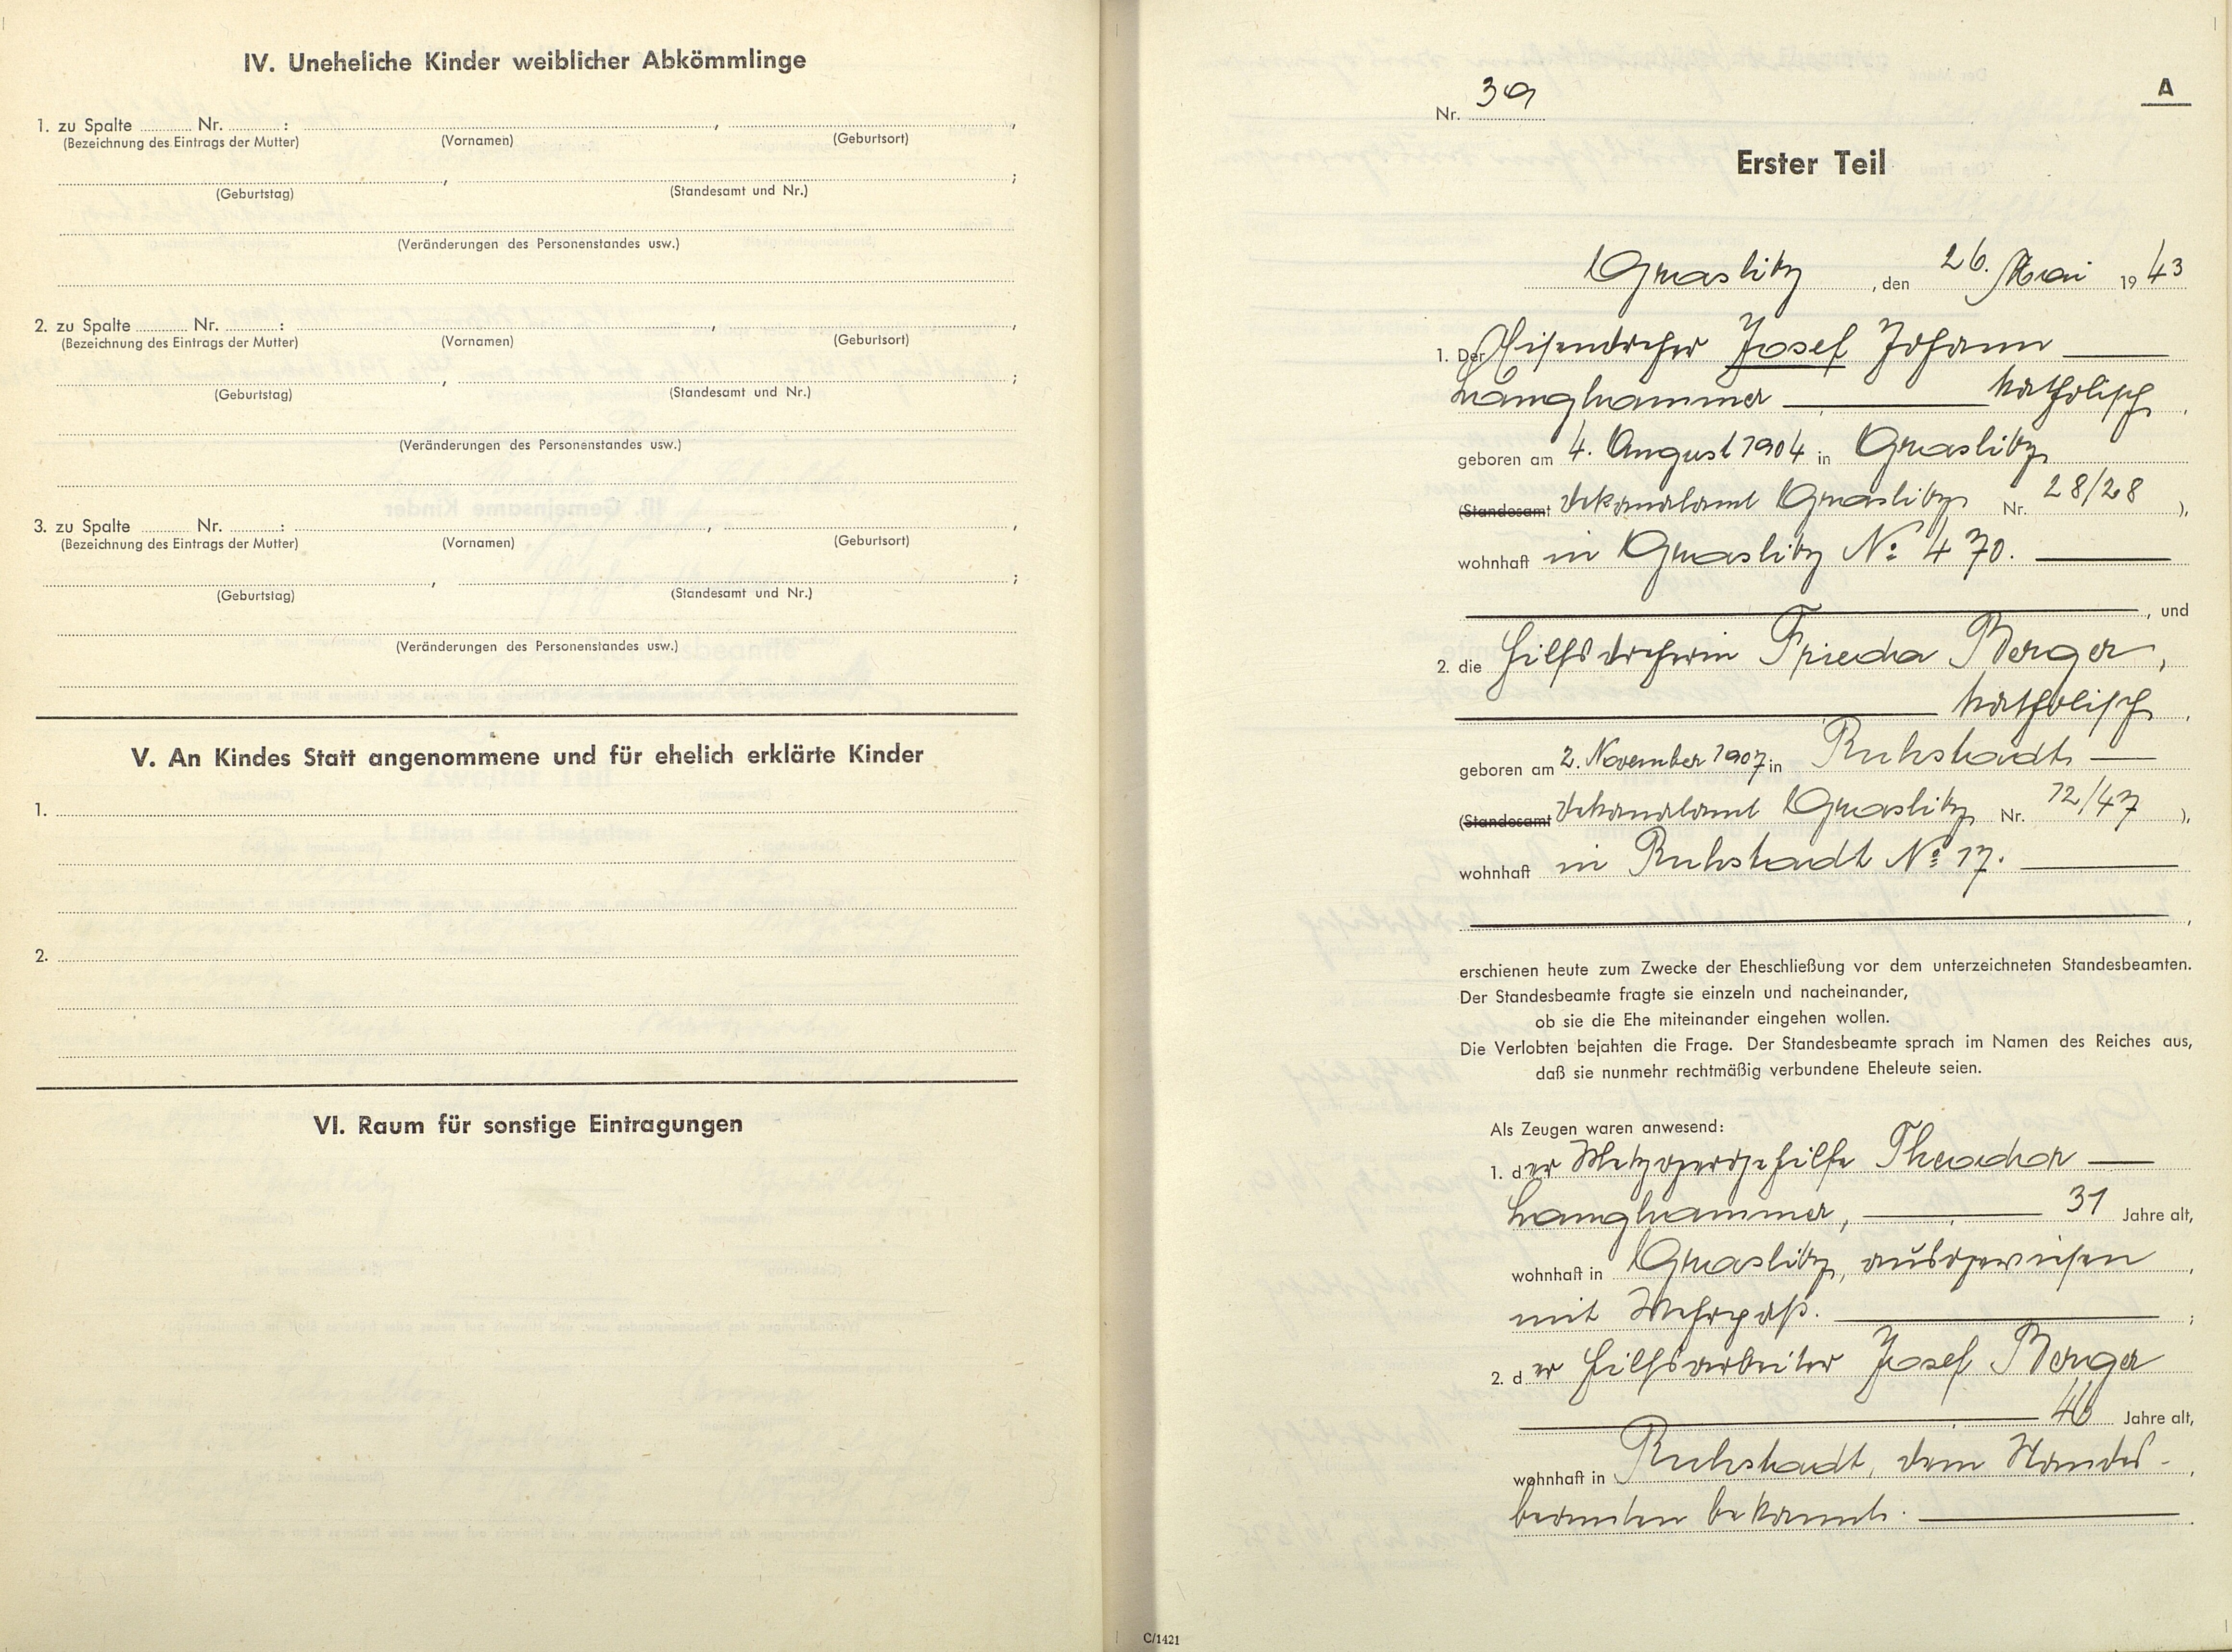 IV. Uneheliche Kinder weiblicher Abkömmlinge
1. zu Spalte ........ Nr. ........ : ........ , ........ ,
(Bezeichnung des Eintrags der Mutter) (Vornamen) (Geburtsort)
........ , ........ ;
(Geburtstag) (Standesamt und Nr.)
(Veränderungen des Personenstandes usw.)
2. zu Spalte ........ Nr. ........ : ........ , ........ ,
(Bezeichnung des Eintrags der Mutter) (Vornamen) (Geburtsort)
........ , ........ ;
(Geburtstag) (Standesamt und Nr.)
(Veränderungen des Personenstandes usw.)
3. zu Spalte ........ Nr. ........ : ........ , ........ ,
(Bezeichnung des Eintrags der Mutter) (Vornamen) (Geburtsort)
........ , ........ ;
(Geburtstag) (Standesamt und Nr.)
(Veränderungen des Personenstandes usw.)
V. An Kindes Statt angenommene und für ehelich erklärte Kinder
1.
2.
VI. Raum für sonstige Eintragungen
A
Nr. 39
Erster Teil
Graslitz, den 26. Mai 1943
1. Der Eisendreher Josef Johann
Langhammer katholisch,
geboren am 4. August 1904 in Graslitz
(Standesamt Dekanalamt Graslitz Nr. 28/28 ),
wohnhaft in Graslitz No 470.
, und
2. die Hilfsdreherin Frieda Berger,
katholisch,
geboren am 2. November 1907 in Ruhstadt
(Standesamt Dekanalamt Graslitz Nr. 12/47 ),
wohnhaft in Ruhstadt No 17.
,
erschienen heute zum Zwecke der Eheschließung vor dem unterzeichneten Standesbeamten.
Der Standesbeamte fragte sie einzeln und nacheinander,
ob sie die Ehe miteinander eingehen wollen.
Die Verlobten bejahten die Frage. Der Standesbeamte sprach im Namen des Reiches aus,
daß sie nunmehr rechtmäßig verbundene Eheleute seien.
Als Zeugen waren anwesend:
1. der Metzgergehilfe Theodor
Langhammer, 31 Jahre alt,
wohnhaft in Graslitz, ausgewiesen,
mit Wehrpaß. ;
2. der Hilfsarbeiter Josef Berger
, 46 Jahre alt,
wohnhaft in Ruhstadt, dem Standes-,
beamten bekannt.
C/1421